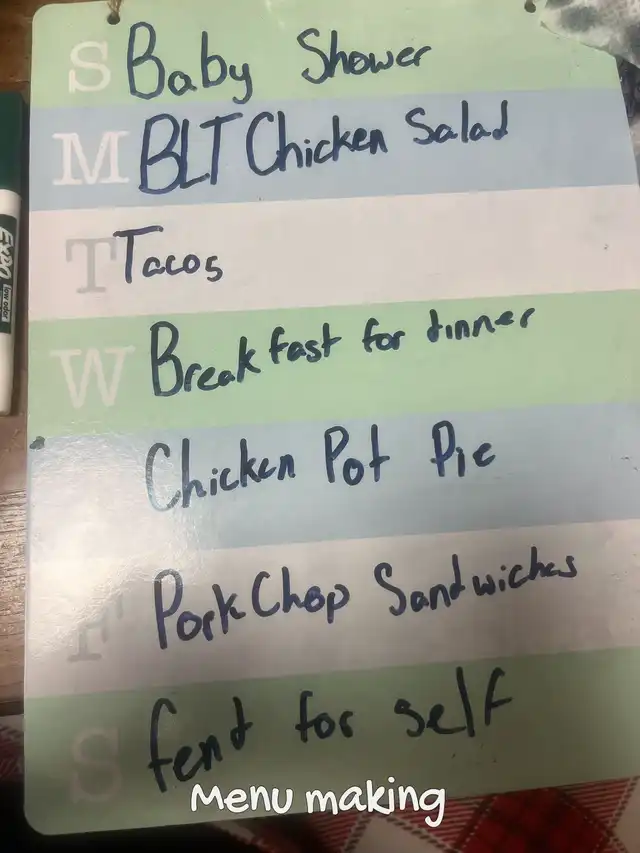 S Baby Shower
M BLT Chicken Salad
T Tacos
W Breakfast for dinner
Chicken Pot Pie
F Pork Chop Sandwiches
S fend for self
EXPO
low odor
Menu making